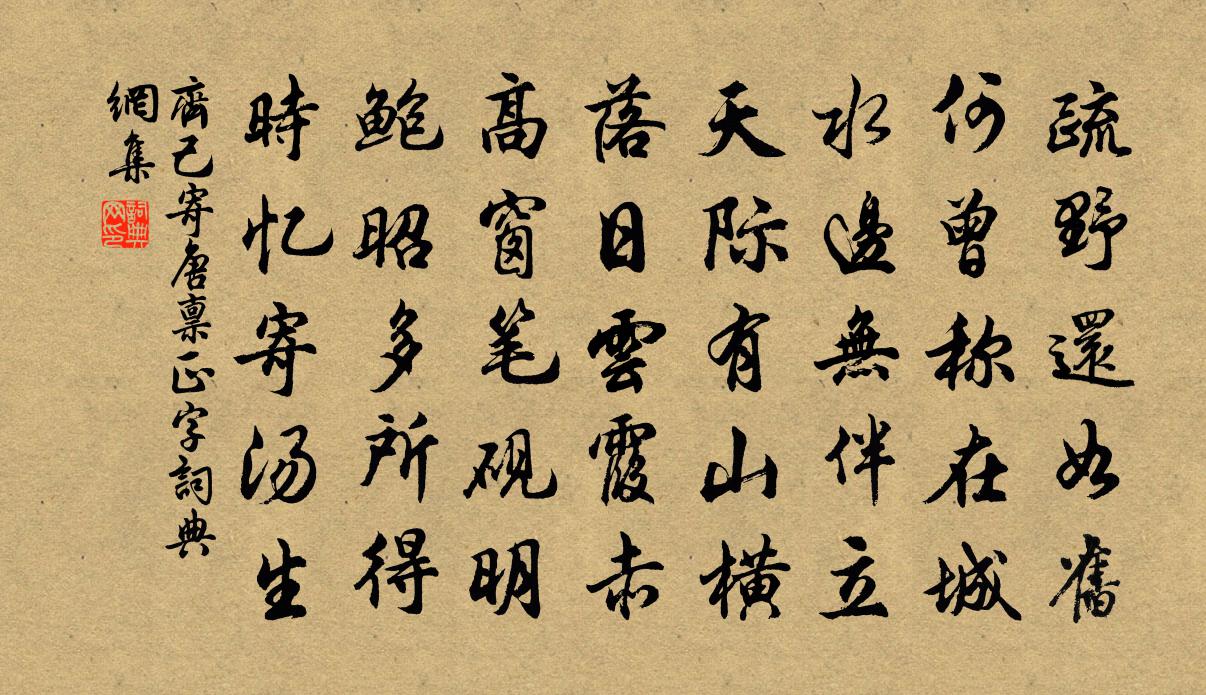 疏野還如舊
何曾称在城
水邊無伴立
天际有山橫
落日雲霞赤
高窗笔砚明
鲍昭多所得
時忆寄汤生
齊己寄唐禀正字詞典
網集
詞典網印